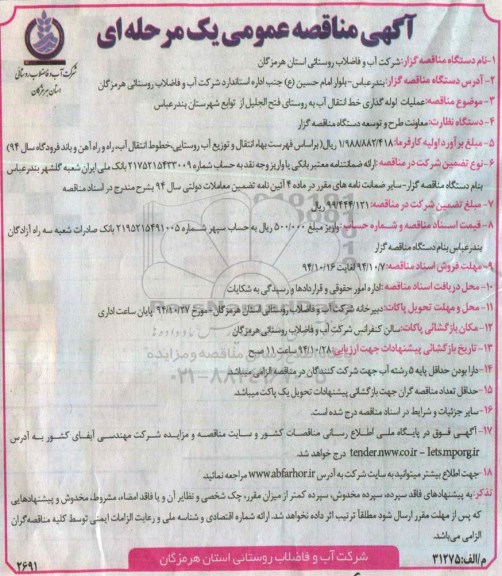 آگهی مناقصه عمومی یک مرحله ای
شرکت آب و فاضلاب روستائی
استان هرمزگان
۱-نام دستگاه مناقصه گزار: شرکت آب و فاضلاب روستائی استان هرمزگان
۲- آدرس دستگاه مناقصه گزار: بندرعباس-بلوار امام حسین (ع) جنب اداره استاندارد شرکت آب و فاضلاب روستائی هرمزگان
۳- موضوع مناقصه: عملیات لوله گذاری خط انتقال آب به روستای فتح الجلیل از توابع شهرستان بندرعباس
۴- دستگاه نظارت: معاونت طرح و توسعه دستگاه مناقصه گزار
۵- مبلغ برآورد اولیه کارفرما: ۱/۹۸۸/۸۸۲/۴۱۸ ریال( براساس فهرست بهاء انتقال و توزیع آب روستایی،خطوط انتقال آب، راه و راه آهن و باند فرودگاه سال ۹۴)
۶- نوع تضمین شرکت در مناقصه: ارائه ضمانتنامه معتبر بانکی یا واریز وجه نقد به حساب شماره ۲۱۷۵۲۱۵۴۳۳۰۰۹ بانک ملی ایران شعبه گلشهر بندرعباس
بنام دستگاه مناقصه گزار-سایر ضمانت نامه های مقرر در ماده ۴ آئین نامه تضمین معاملات دولتی سال ۹۴ بشرح مندرج در اسناد مناقصه
۷- مبلغ تضمین شرکت در مناقصه: ۹۹/۴۴۴/۱۲۱ ریال
۸- قیمت اسناد مناقصه و شماره حساب: واریز مبلغ ۵۰۰/۰۰۰ ریال به حساب سپهر شماره ۲۱۹۵۲۱۵۴۹۱۰۰۵ بانک صادرات شعبه سه راه آزادگان
بندرعباس بنام دستگاه مناقصه گزار
۹- مهلت فروش اسناد مناقصه: ۹۴/۱۰/۷ لغایت ۹۴/۱۰/۱۶
۱۰- محل دریافت اسناد مناقصه: اداره امور حقوقی و قراردادها و رسیدگی به شکایات
۱۱- محل و مهلت تحویل پاکات: دبیرخانه شرکت آب و فاضلاب روستائی استان هرمزگان-مورخ ۹۴/۱۰/۲۷ پایان ساعت اداری
۱۲- مکان بازگشائی پاکات: سالن کنفرانس شرکت آب و فاضلاب روستائی هرمزگان
۱۳- تاریخ بازگشائی پیشنهادات جهت ارزیابی: ۹۴/۱۰/۲۸ ساعت ۱۱ صبح
۱۴- دارا بودن حداقل پایه ۵ رشته آب جهت شرکت کنندگان در مناقصه الزامی میباشد
۱۵- حداقل تعداد مناقصه گران جهت بازگشائی پیشنهادات تحویل یک پاکت میباشد
۱۶- سایر جزئیات و شرایط در اسناد مناقصه درج شده است.
۱۷- آگهی فوق در پایگاه ملی اطلاع رسانی مناقصات کشور و سایت مناقصه و مزایده شرکت مهندسی آبفای کشور به آدرس
tender.nww.co.ir – Iets.mporg.ir درج خواهد شد.
۱۸- جهت اطلاع بیشتر میتوانید به سایت شرکت به آدرس www.abfarhor.ir مراجعه نمائید.
تذکر: به پیشنهادهای فاقد سپرده، سپرده مخدوش، سپرده کمتر از میزان مقرر، چک شخصی و نظایر آن و یا فاقد امضاء، مشروط، مخدوش و پیشنهادهایی
که پس از مهلت مقرر ارسال شود مطلقاً ترتیب اثر داده نخواهد شد. ارائه شماره اقتصادی و شناسه ملی و رعایت الزامات ایمنی توسط کلیه مناقصه گران
الزامی می باشد.
م/الف: ۳۱۲۷۵
شرکت آب و فاضلاب روستائی استان هرمزگان
۲۶۹۱